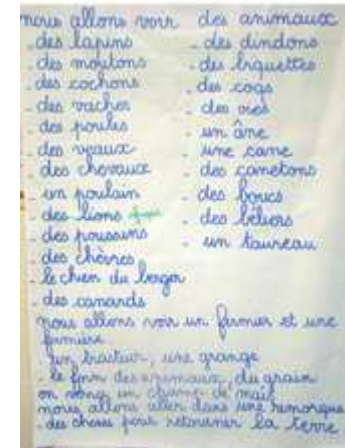 nous allons voir des animaux
- des lapins
- des moutons
- des cochons
- des vaches
- des poules
- des veaux
- des chevaux
- un poulain
- des lions
- des poussins
- des chèvres
- le chien du berger
- des canards
- des dindons
- des biquettes
- des coqs
- des oies
- un âne
- une cane
- des canetons
- des boucs
- des béliers
- un taureau
nous allons voir un fermier et une
fermière
- un tracteur, une grange
- le foin des animaux, du grain
on verra un champ de maïs
nous allons aller dans une remorque
- des choses pour retourner la terre